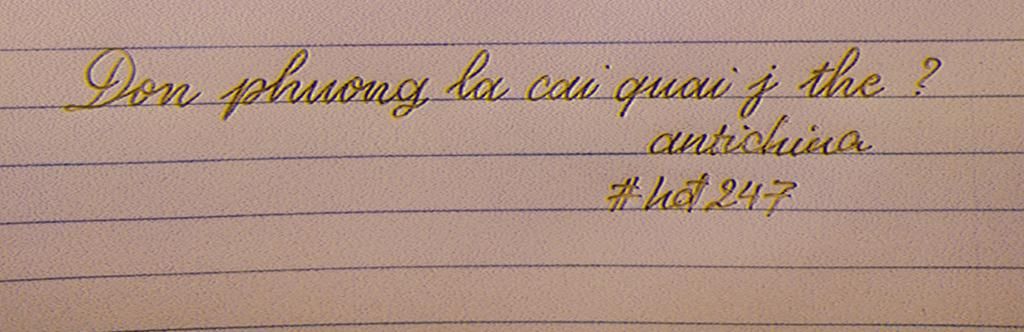 Don phuong la cai quai j the ?
antichina
#hot 247